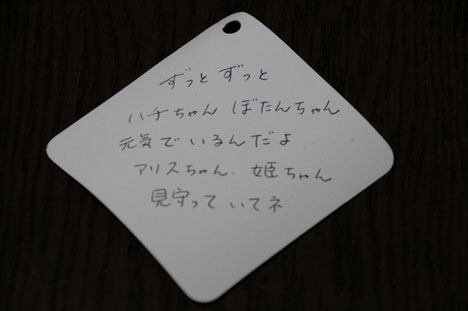 ずっと ずっと
ハチちゃん ぼたんちゃん
元気でいるんだよ
アリスちゃん. 姫ちゃん
見守っていてネ